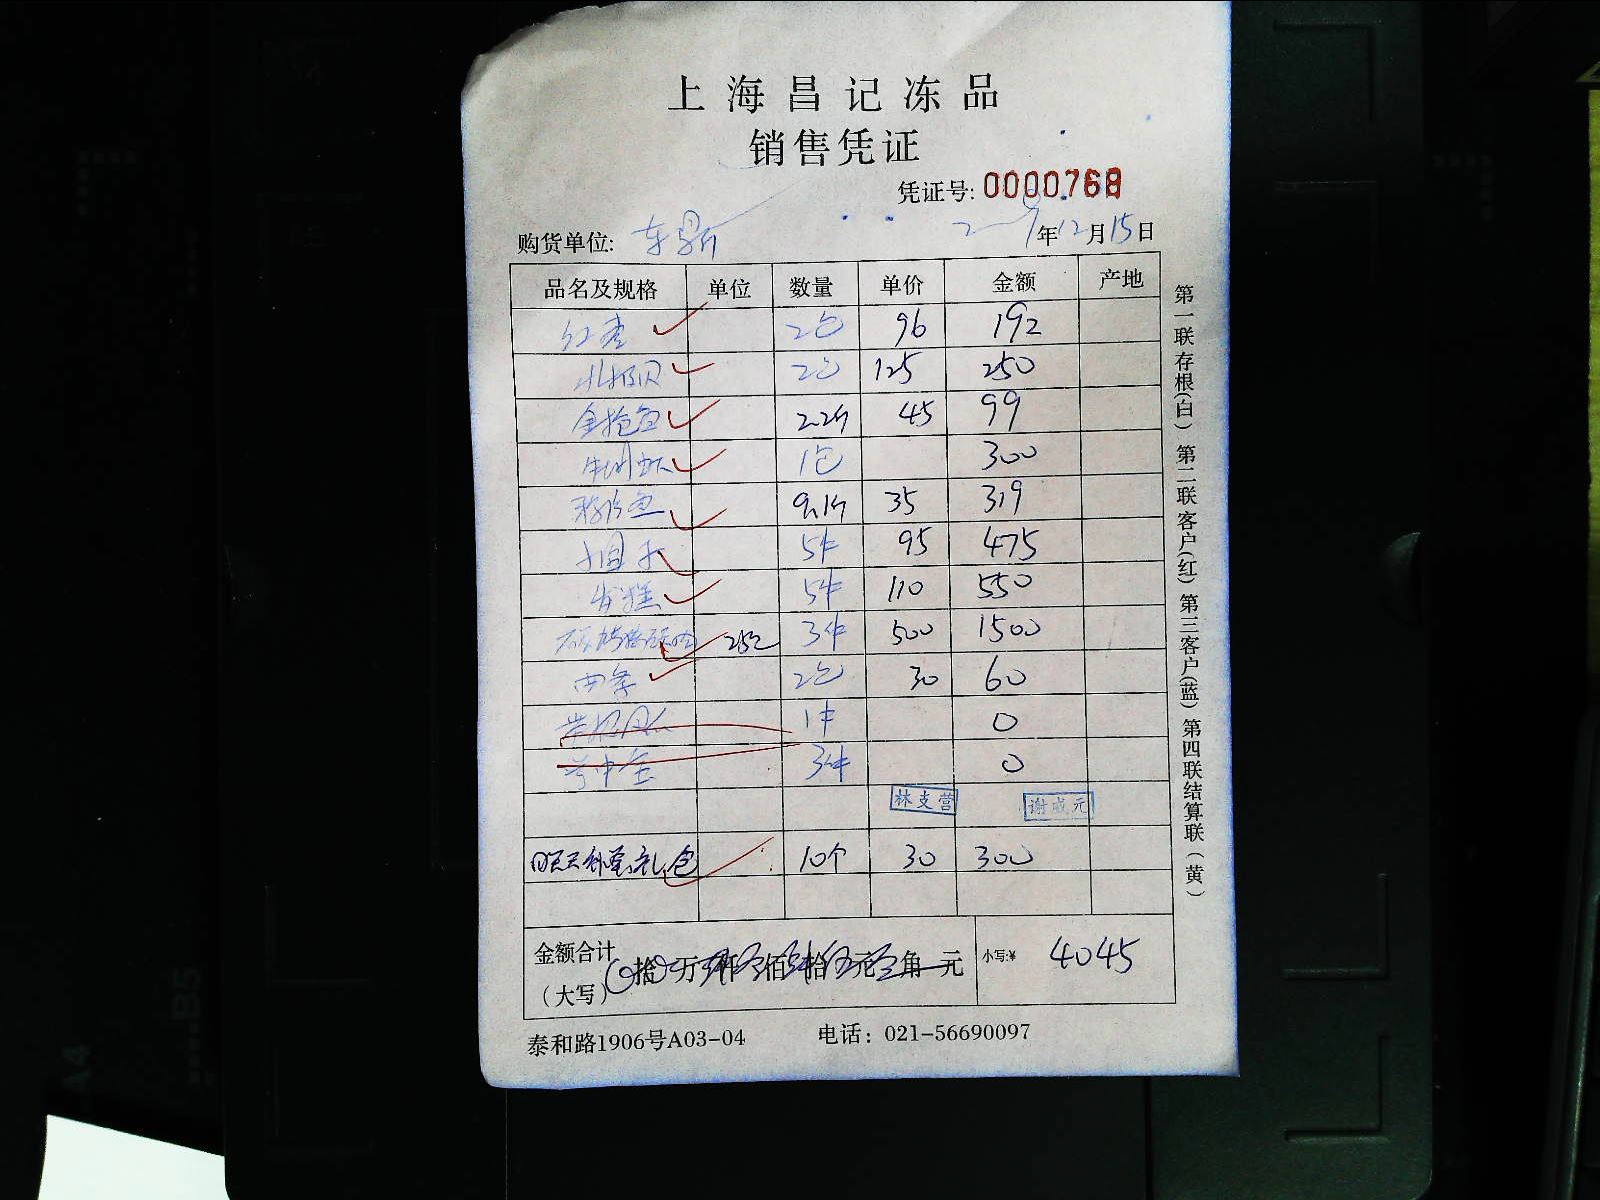 上海昌记冻品
销售凭证
凭证号: 0000768
购货单位: 东鼎 年12月15日
品名及规格 单位 数量 单价 金额 产地
2包 96 192
北极贝 2包 125 250
金抢鱼 2.2斤 45 99
1包 300
9.1斤 35 319
5件 95 475
发糕 5件 110 550
3件 500 1500
西芹 2包 30 60
1件 0
3件 0
林支营 谢成元
礼包 10个 30 300
金额合计(大写) 拾 万 仟 佰 拾 元 角 元 小写:¥ 4045
泰和路1906号A03-04 电话: 021-56690097
第一联存根(白) 第二联客户(红) 第三客户(蓝) 第四联结算联(黄)
B5
A4